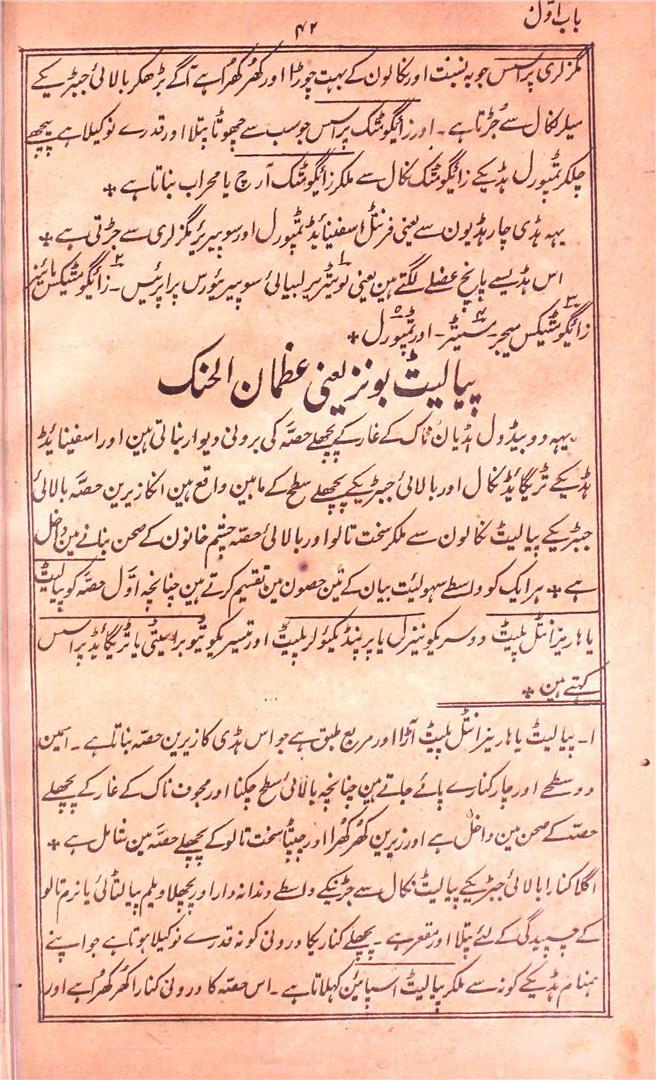 باب اوّل
۴۲
گزلری پراسس جو بہ نسبت اور نکالون کے بہت چوڑا اور کھُر کھُرا ہے آگے بڑھکر بالائی جبڑیکے
میلر نکال سے جُڑتا ہے ۔ اور زائیگوٹمٹک پراسس جو سب سے چھوٹا پتلا اور قدرے نوکیلا ہے پیچھے
چلکر ٹمپورل ہڈیکے زائیگوٹمٹک نکال سے ملکر زائیگوٹمٹک آرچ یا محراب بناتا ہے ۔
یہہ ہڈی چار ہڈیون سے یعنی فرنٹل اسفینائیڈ ٹمپورل اور سوپیریر مگزلری سے جڑتی ہے ۔
اس ہڈیسے پانچ عضلے لگتے ہین یعنی لویٹر لیبیائی سوپیریورس پراپرئیس ۔ زائیگوٹیکس مائینر
زائیگوٹیکس میجر ۔ مسیٹر ۔ اور ٹمپورل ۔
پیالیٹ بونز یعنی عظمان الحنک
یہہ دو بیڈول ہڈیان ناک کے غار کے پچھلے حصّہ کی برونی دیوار بناتی ہین اور اسفینائیڈ
ہڈیکے ٹریگائیڈ نکال اور بالائی جبڑیکے پچھلے سطح کے مابین واقع ہین انکا زیرین حصّہ بالائی
جبڑیکے پیالیٹ نکالون سے ملکر سخت تالو اور بالائی حصّہ چشم خانون کے صحن بنانے مین داخل
ہے ۔ ہر ایک کو واسطے سہولیت بیان کے تین حصون مین تقسیم کرتے ہین چنانچہ اوّل حصّہ کو پیالیٹ
یا ہاریزانٹل پلیٹ دوسریکو نیزل یا پرپنڈیکیولر پلیٹ اور تیسریکو ٹیوبراسیٹی یا ٹریگائیڈ پراسس
کہتے ہین ۔
۱ ۔ پیالیٹ یا ہاریزانٹل پلیٹ آڑا اور مربع طبق ہے جو اس ہڈی کا زیرین حصّہ بناتا ہے ۔ اسمین
دو سطح اور چار کنارے پائے جاتے ہین چنانچہ بالائی سطح چکنا اور مجوف ناک کے غار کے پچھلے
حصّہ کے صحن مین داخل ہے اور زیرین کھُر کھُرا اور چپٹا سخت تالو کے پچھلے حصّہ مین شامل ہے ۔
اگلا کنارا بالائی جبڑیکے پیالیٹ نکال سے جڑنیکے واسطے دندانہ دار اور پچھلا ویلم پیالٹائی یا نرم تالو
کے چسپیدگی کے لئے پتلا اور مقعر ہے ۔ پچھلے کناریکا درونی کونہ قدرے نوکیلا ہوتا ہے جو اپنے
ہمنام ہڈیکے کونہ سے ملکر پیالیٹ اسپائین کہلاتا ہے ۔ اس حصّہ کا درونی کنارا کھُر کھُر ہے اور